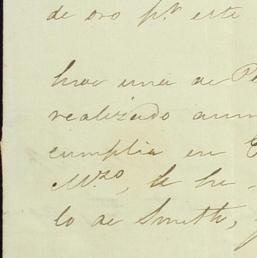 de oro pr. este
hice una de P
realizado aun
cumplia en
Mzo, le he
lo de Smith,